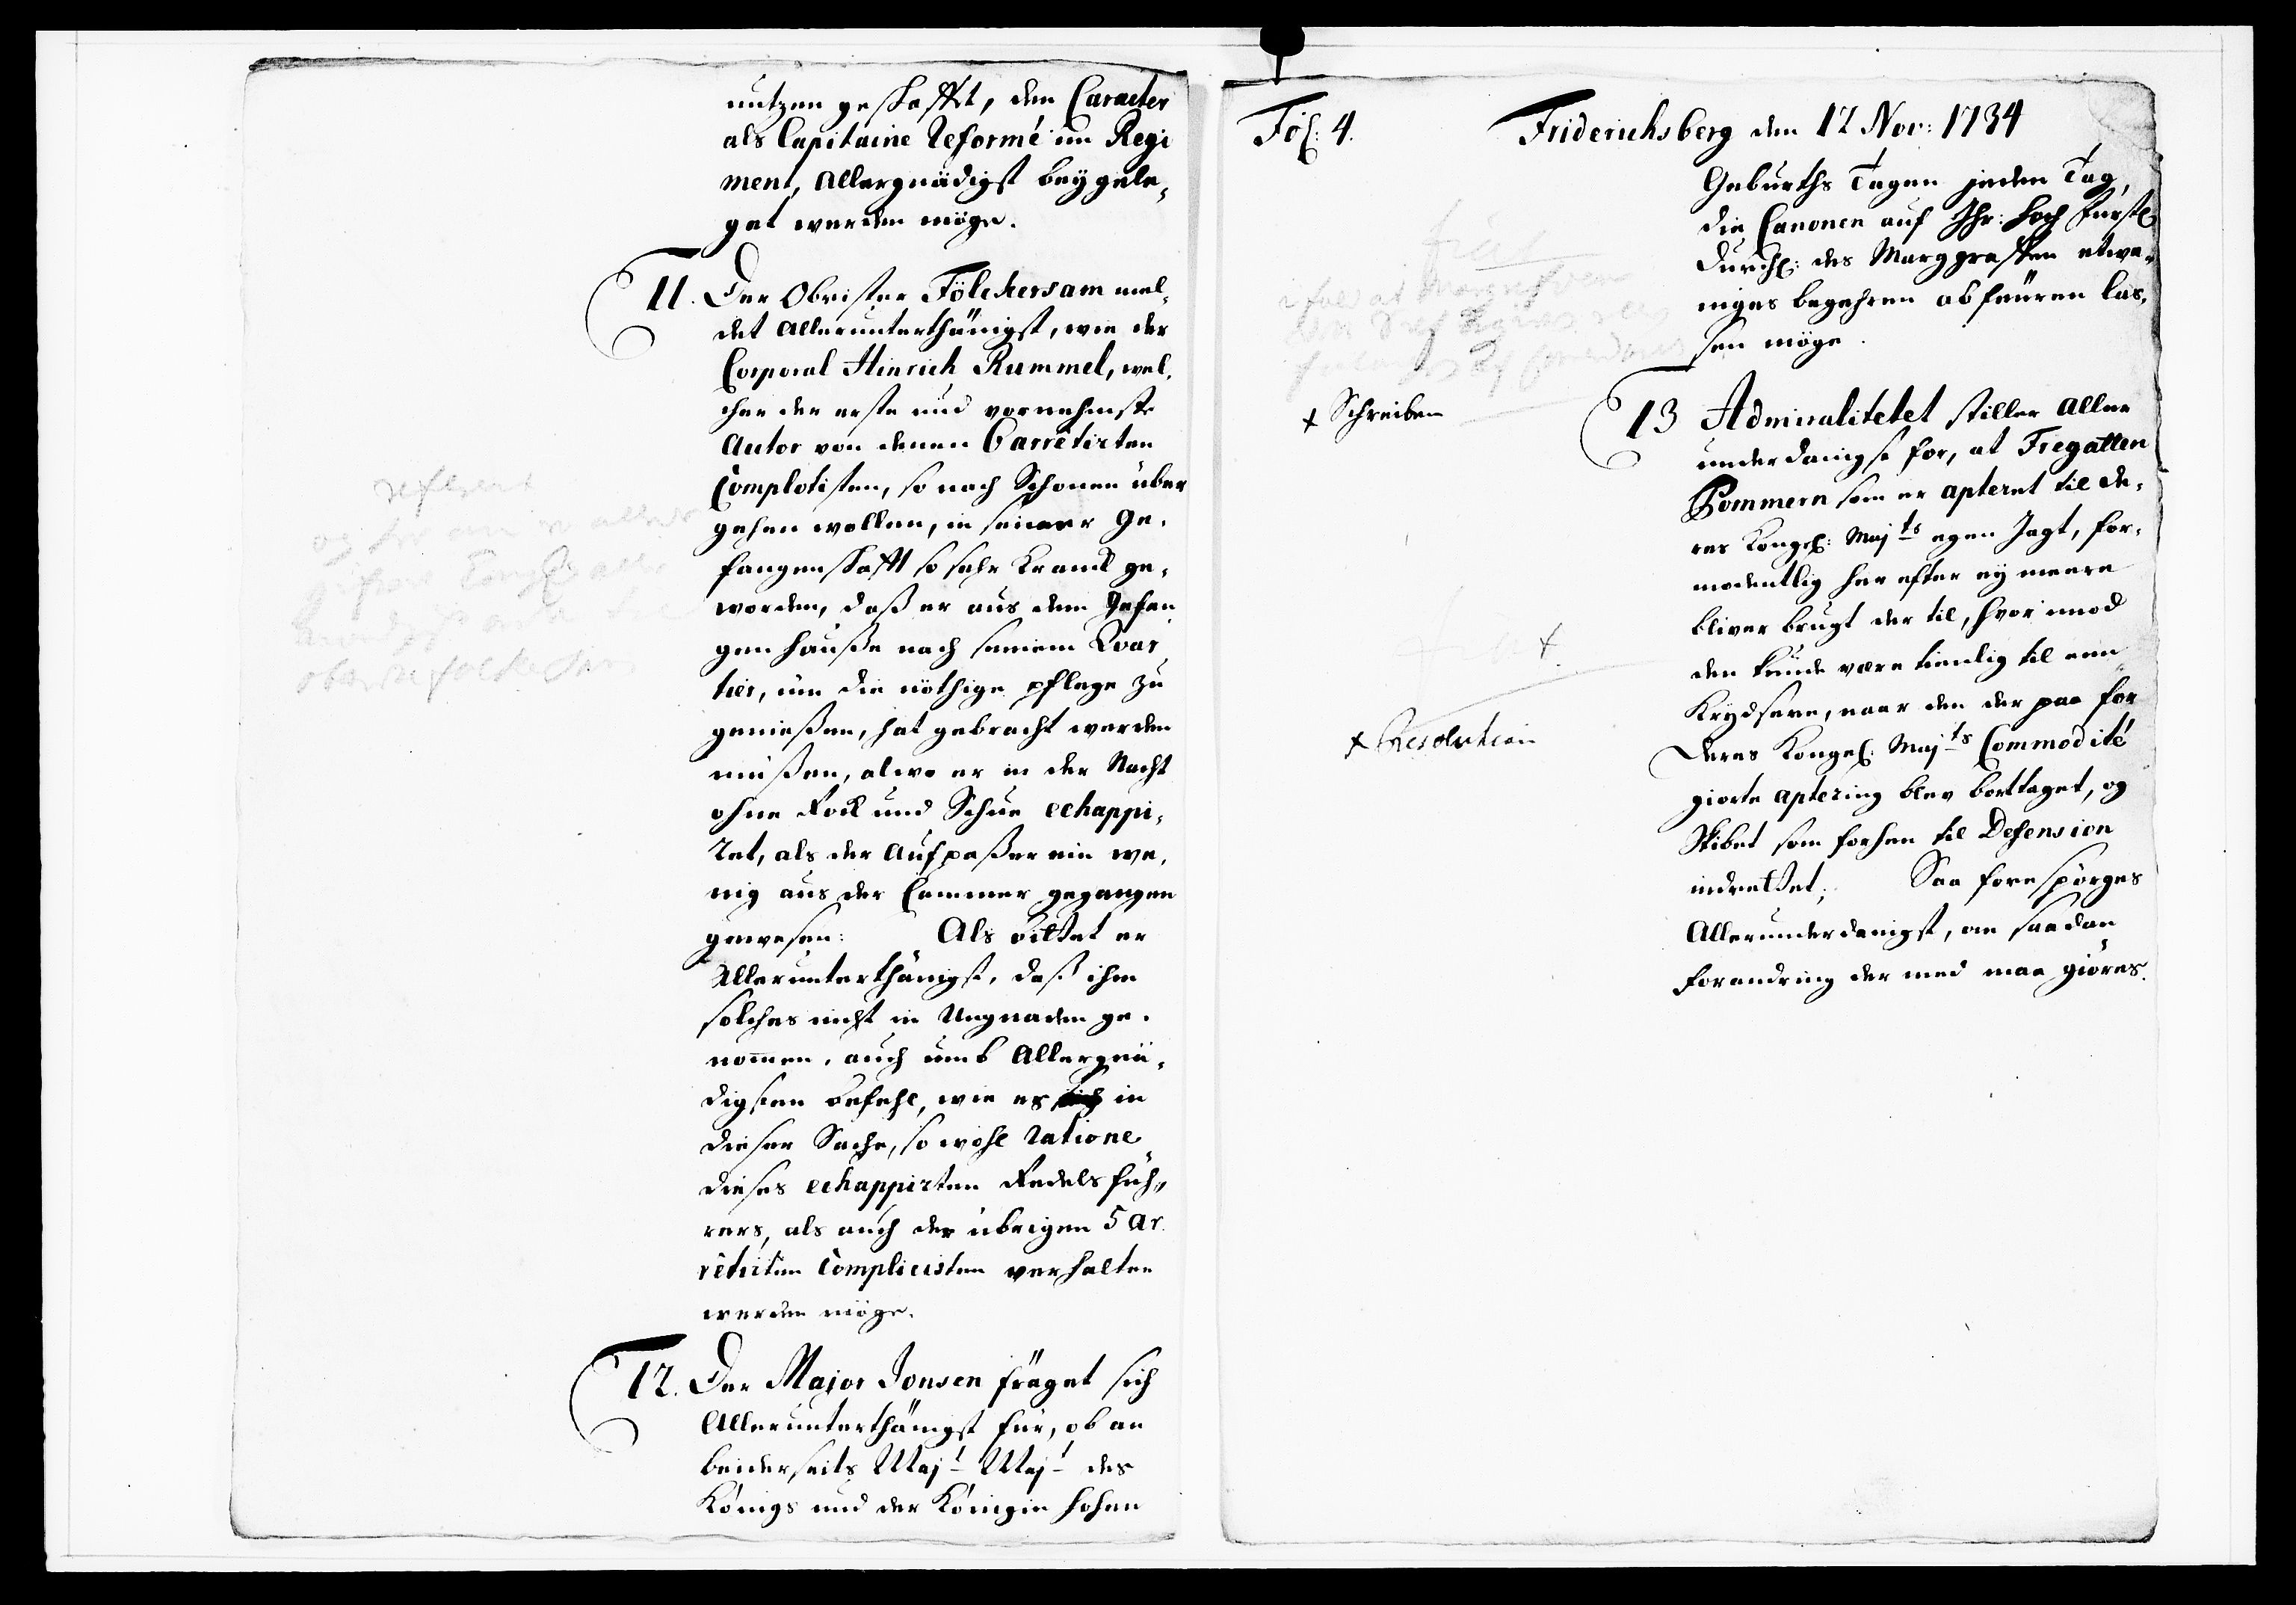 nutzen geschafft, den Caracter
als Capitaine Reformé im Regi
ment, Allergnädigst beÿgele,
get werden möge.
11. Der Obrister Fölckersam mel,
det Allerunterthänigst, wie der
Corporal Hinrich Rummel, wel,
cher der erste und vornehmste
Autor von denen 6 arrêtirten
Complotisten, so nach Schonen über
gehen wollen, in seiner Ge,
fangenschafft so sehr Kranck ge,
worden, daß er aus dem Gefan
gen hauße nach seinem Quar
tier, um die nöthige pflege zu
genießen, hat gebracht werden
müßen, alwo er in der Nacht
ohne Rock und Schue echappi,
ret, als der Aufpaßer ein we,
nig aus der Cammer gegangen
gewesen: Als bittet er
Allerunterthänigst, daß ihm
solches nicht in Ungnaden ge,
nommen, auch umb Allergnä,
digsten befehl, wie es in
dieser Sache, so wohl ratione
dieses echappirten Redelsfüh,
rers, als auch der übrigen 5 ar
rêtirten Complicisten verhalten
werden möge.
12. Der Major Jonsen fräget sich
Allerunterthänigst für, ob an
beiderseits Majt Majt des
Königs und der Königin hohen
referert
Fol: 4. Friderichsberg den 12 Nov: 1734
Geburths Tagen jeden Tag,
die Canonen auf Ihr: Hoch Fürstl
Durchl: des Marggraffen etwa,
niges begehren abfeuren las,
sen möge.
x Schreiben
13 Admiralitetet stiller Aller
underdanigst for, at Fregatten
Pommern som er apteret til De,
res Kongel: Majts egen Jagt, for,
modentlig her efter eÿ meere
bliver brugt der til, hvorimod
den kunde være tienlig til een
Krydsere, naar den der paa for
Deres Kongel: Majts Commodité
giorte aptering blev borttaget, og
Skibet som forhen til Defension
indrettet; Saa forespörges
Allerunderdanigst, om saadan
forandring der med maa giöres.
x Resolution